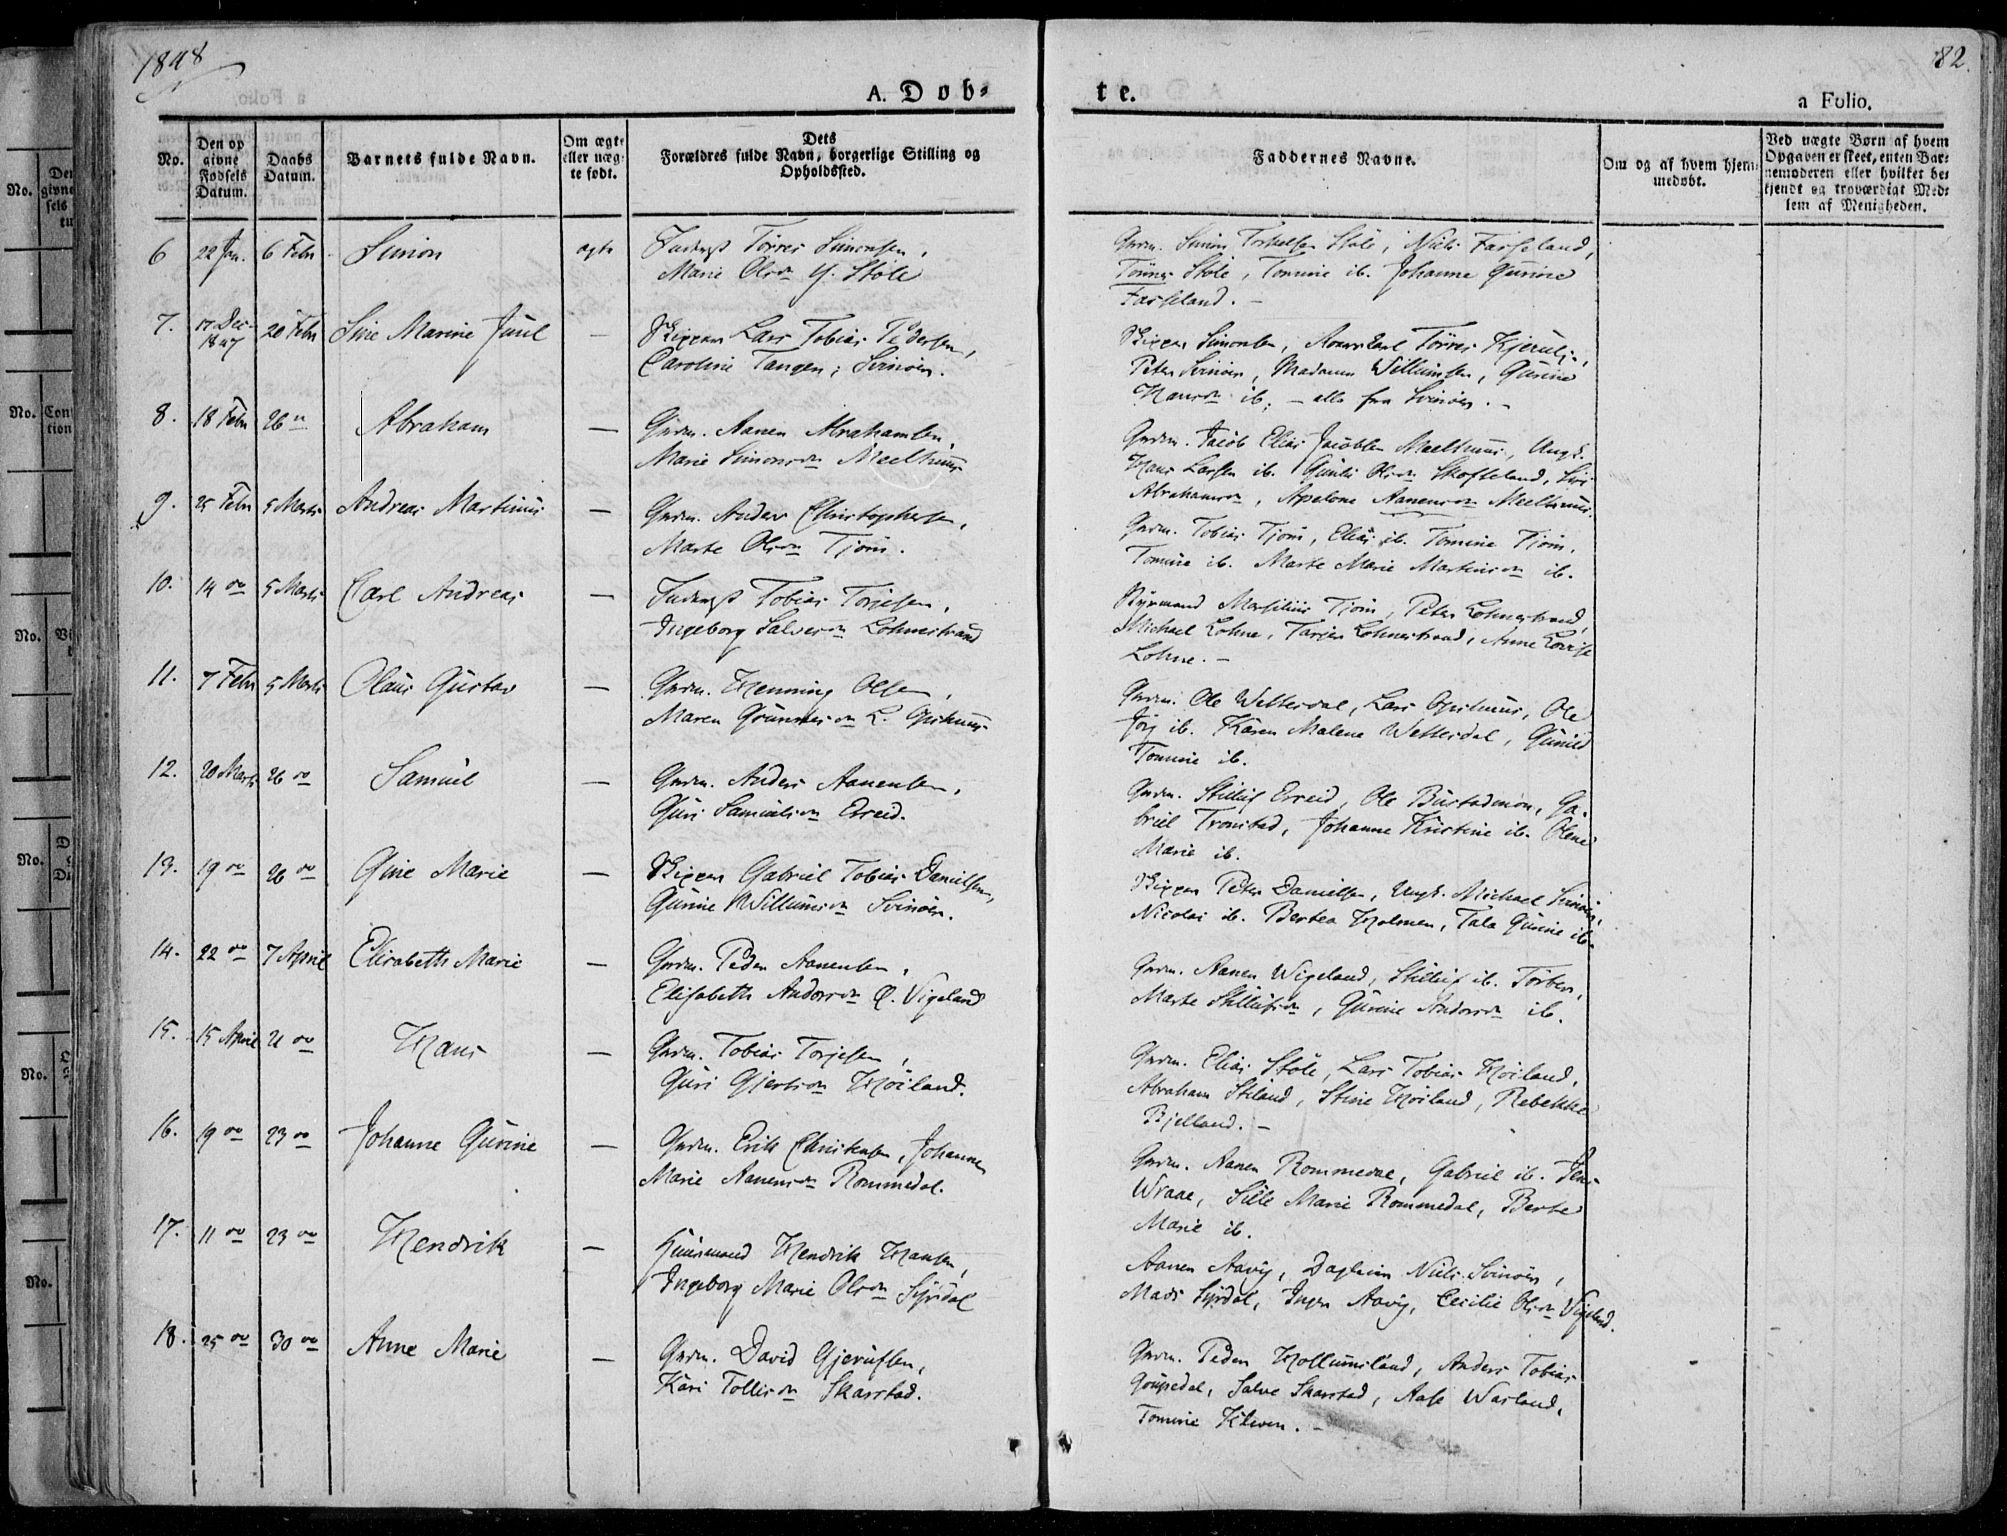 1848
82.
A. Døb-
te.
a Folio.
No.
Den op givne Fødsels Datum.
Daabs Datum.
Barnets fulde Navn.
Om ægte eller uæg- te født.
Dets Forældres fulde Navn, borgerlige Stilling og Opholdssted.
Faddernes Navne.
Om og af hvem hjem- medøbt.
Ved uægte Børn af hvem Opgaven er skeet, enten Bar- nemoderen eller hvilket be- kjendt og troværdigt Med- lem af Menigheden.
6 22 Jan. 6 Febr Simon ægte Torres Simonsen,
Marie Olsdn Y. Støle
Grdm. Simon Støle, Niels Farseland,
Tønnes Støle, Tomine ib. Johanne Gurine
Farseland. -
7. 17 Dec. 1847 20 Febr Sine Marine Juul - Skipper Lars Tobias Pedersen,
Caroline Tangen, Svinøer.
Skipper Simonsen, Torres
Peter Svinøer, Madamme Willumsen, Gurine
ib. - alle fra Svinøer. -
8. 18 Febr 26 " Abraham - Grdm. Aanen Abrahamsen,
Marie Simonsdn Meelhuus
Grdm. Jacob Elias Jacobsen Meelhuus, Ungk.
Hans Larsen ib. Olsdn Skofteland, Siri
Abrahamsdn, Apelone Aanensdn Meelhuus.
9. 25 Febr 5 Marts Andreas Martinus - Grdm. Anders Christophersen,
Marte Olsdn Tjøm.
Grdm. Tobias Tjøm, Elias ib. Tomine Tjøm,
Tomine ib. Marte Marie ib.
10. 14 do 5 Marts Carl Andreas - Tobias Torjesen,
Ingeborg Salvesdn Lohnestrand
Styrmand Tjøm, Peter Lohnestrand,
Michael Lohne, Tarjer Lohnestrand, Anne Lovise
Lohne. -
11. 7 Febr 5 Marts Olaus Gustav - Grdm. Henning Olsen,
Maren L. Ophuus
Grdm. Ole Wetterdal, Lars Ophuus, Ole
ib. Karen Malene Wetterdal, Gunild
Tomine ib.
12. 20 Marts 26 do Samuel - Grdm. Anders Aanensen,
Guri Samuelsdn Erreid.
Grdm. Stilluf Erreid, Ole Ga-
briel Tronstad, Johanne Kristine ib. Olene
Marie ib.
13. 19 do 26 do Gine Marie - Skipper Gabriel Tobias Danielsen,
Gunine Willumsdn Svinøer.
Skipper Peter Danielsen, Ungk. Michael Svinøer,
Nicolai ib. Bertea Holmen, Tala Gurine ib.
14. 22 do 7 April Elisabeth Marie - Grdm. Peder Aanensen,
Elisabeth Andersdn Ø. Vigeland
Grdm. Aanen Wigeland, Stilluf ib. Torber,
Marte Stillufsdn, Gurine Andersdn ib.
15. 15 April 21 do Hans - Grdm. Tobias Torjesen,
Guri Gjertsdn Høiland.
Grdm. Elias Støle, Lars Tobias Høiland,
Abraham Stiland, Stine Høiland, Rebekke
Bjelland. -
16. 19 do 23 do Johanne Gurine - Grdm. Erik Christensen, Johanne
Marie Aanensdn Rommedal.
Grdm. Aanen Rommedal, Gabriel ib. Jens
Wraae, Sille Marie Rommedal, Berte
Marie ib.
17. 11 do 23 do Hendrik - Huusmand Hendrik Hansen,
Ingeborg Marie Olsdn Syrdal
Aanen Aavig, Niels Svinøer,
Mads Syrdal, Inger Aavig, Cecilie Olsdn Vigeland.
18. 25 do 30 do Anne Marie - Grdm. David Gjerufsen,
Kari Tollisdn Skarstad.
Grdm. Peder Anders Tobias
Salve Skarstad, Aase Warland,
Tomine Kleven. -